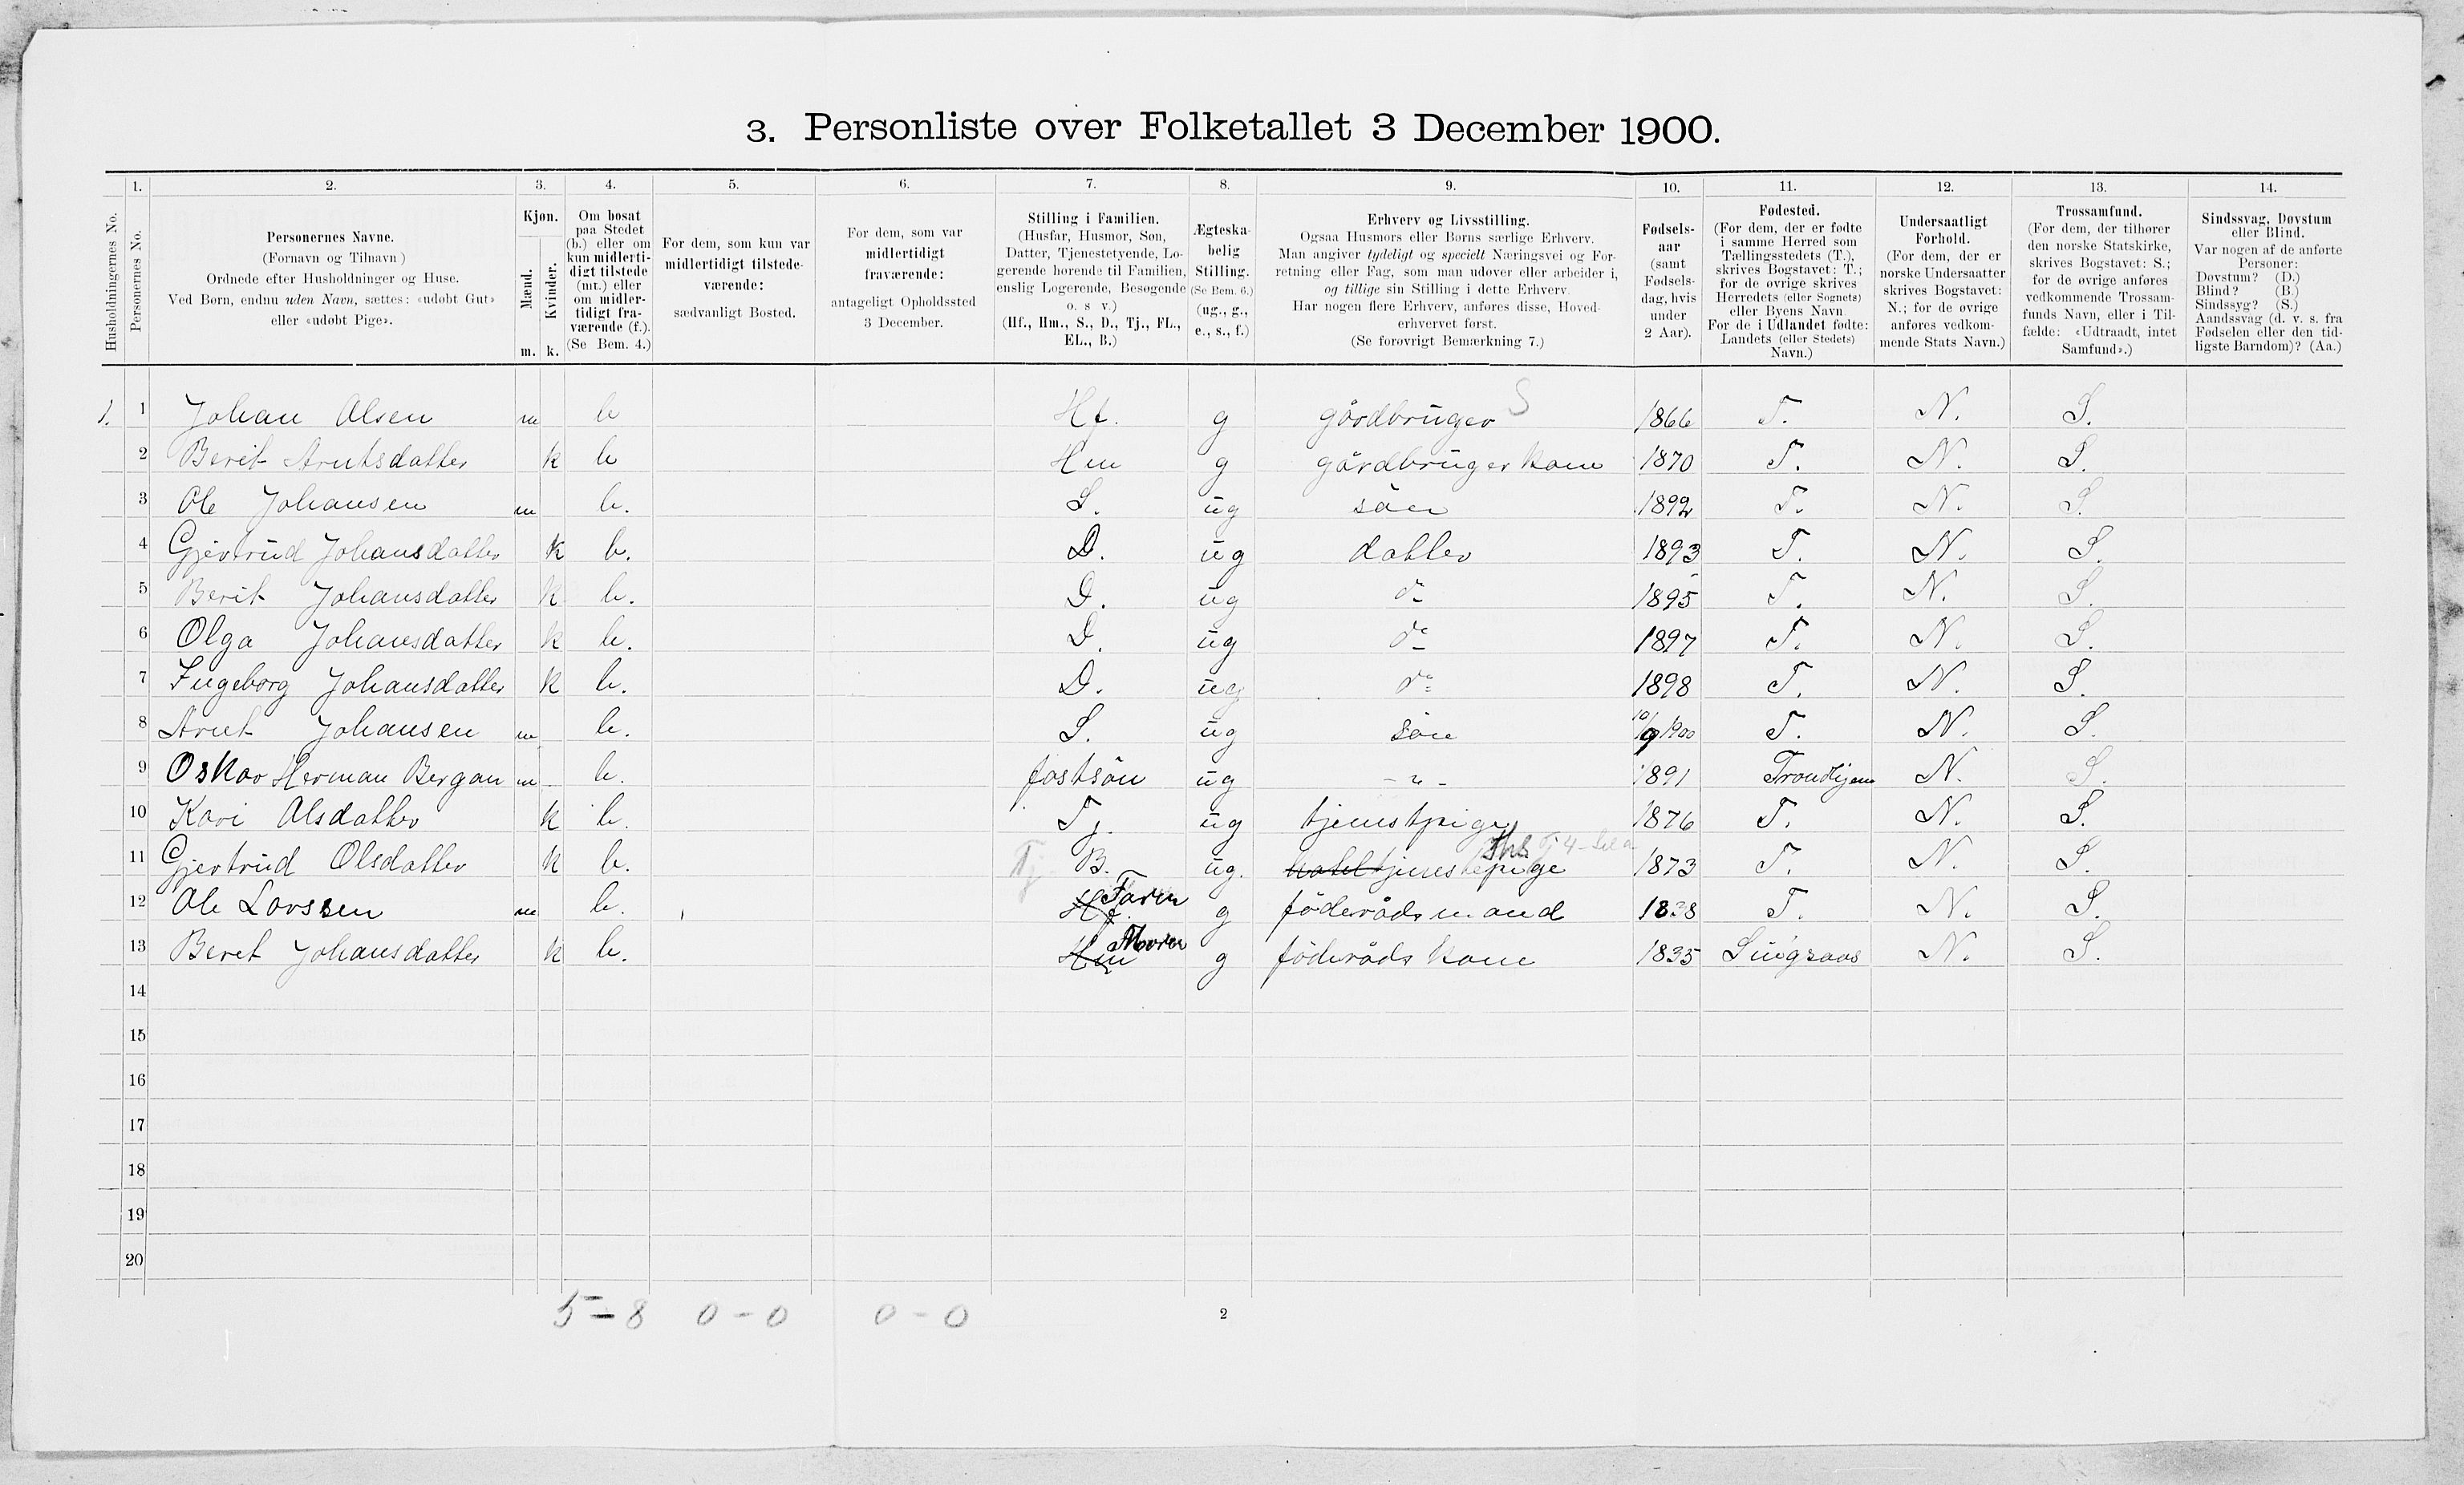 3. Personliste over Folketallet 3 December 1900.
Husholdningernes No.
1. Personernes No.
2. Personernes Navne. (Fornavn og Tilnavn.) Ordnede efter Husholdninger og Huse. Ved Børn, endnu uden Navn, sættes: «udøbt Gut» eller «udøbt Pige».
3. Kjøn. Mænd. m. Kvinder. k.
4. Om bosat paa Stedet (b.) eller om kun midlertidigt tilstede (mt.) eller om midlertidigt fraværende (f.). (Se Bem. 4.)
5. For dem, som kun var midlertidigt tilstedeværende: sædvanligt Bosted.
6. For dem, som var midlertidigt fraværende: antageligt Opholdssted 3 December.
7. Stilling i Familien. (Husfar, Husmor, Søn, Datter, Tjenestetyende, Logerende hørende til Familien, enslig Logerende, Besøgende o. s v.) (Hf., Hm., S., D., Tj., FL., EL., B.)
8. Ægteskabelig Stilling. (Se Bem. 6.) (ug., g., e., s., f.)
9. Erhverv og Livsstilling. Ogsaa Husmors eller Børns særlige Erhverv. Man angiver tydeligt og specielt Næringsvei og Forretning eller Fag, som man udøver eller arbeider i, og tillige sin Stilling i dette Erhverv. Har nogen flere Erhverv, anføres disse, Hovederhvervet først. (Se forøvrigt Bemærkning 7.)
10. Fødselsaar (samt Fødselsdag, hvis under 2 Aar).
11. Fødested. (For dem, der er fødte i samme Herred som Tællingsstedets (T.), skrives Bogstavet: T.; for de øvrige skrives Herredets (eller Sognets) eller Byens Navn. For de i Udlandet fødte: Landets (eller Stedets) Navn.)
12. Undersaatligt Forhold. (For dem, der er norske Undersaatter skrives Bogstavet: N.; for de øvrige anføres vedkommende Stats Navn.)
13. Trossamfund. (For dem, der tilhører den norske Statskirke, skrives Bogstavet: S.; for de øvrige anføres vedkommende Trossamfunds Navn, eller i Tilfælde: «Udtraadt, intet Samfund».)
14. Sindssvag, Døvstum eller Blind. Var nogen af de anførte Personer: Døvstum? (D.) Blind? (B.) Sindssyg? (S.) Aandssvag (d. v. s. fra Fødselen eller den tidligste Barndom)? (Aa.)
1. 1 Johan Olsen m b Hf. g gårdbruger S 1866 T. N. S.
2 Berit Arntsdatter k b Hm g gårdbruger kone 1870 T. N. S.
3 Ole Johansen m b. S. ug sön 1892 T. N. S.
4 Gjertrud Johansdatter k b. D. ug datter 1893 T. N. S.
5 Berit Johansdatter k b. D. ug do 1895 T. N. S.
6 Olga Johansdatter k b. D. ug do 1897 T. N. S.
7 Ingeborg Johansdatter k b. D. ug do 1898 T. N. S.
8 Arnt Johansen m b. S. ug sön 10/9 1900 T. N. S.
9 Oskar Herman Bergan m b. fostsön ug - " - 1891 Trondhjem N. S.
10 Kari Olsdatter k b. Tj. ug tjenstpige 1876 T. N. S.
11 Gjertrud Olsdatter k b. Tj B. ug. hotel tjenstepige 1873 T. N. S.
12 Ole Larssen m b. Hf. Faren g föderåds mand 1838 T. N. S.
13 Beret Johansdatter k b. Hm Moren g föderåds kone 1835 Singsaas N. S.
14
15
16
17
18
19
20
5 - 8 0 - 0 0 - 0 2